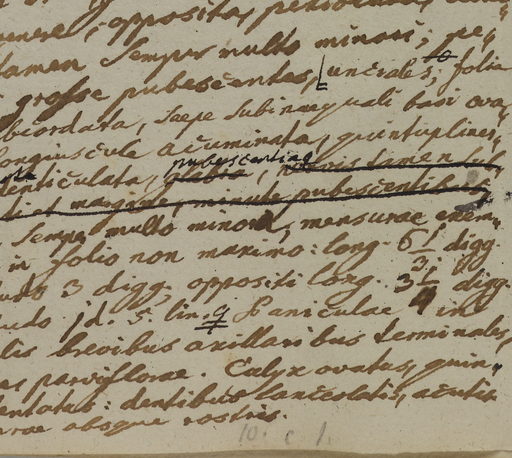 oppositas, petiolatas,
tamen semper multo minori; pe,
grosse pubescentes, uncrales; folia
bcordata, saepe subinaequali basi ova,
longiuscule acuminata, quintupliner,
pubescentino
denticulata, glabra, nervis tamen
et margine, minute pubescentibus
, semper multo minora, mensurae enim
in folio non maximo: long. 6 1/3 digg
3 digg. oppositi long. 3 1/4 digg.
1 d. 5. lin. 9 Paniculae in
lis brevibus axillaribus terminales,
parviflorae. Calyx ovatus, quin,
dentatus: dentibus lanceolatis, acutis
absque rostris.
10. c 1.